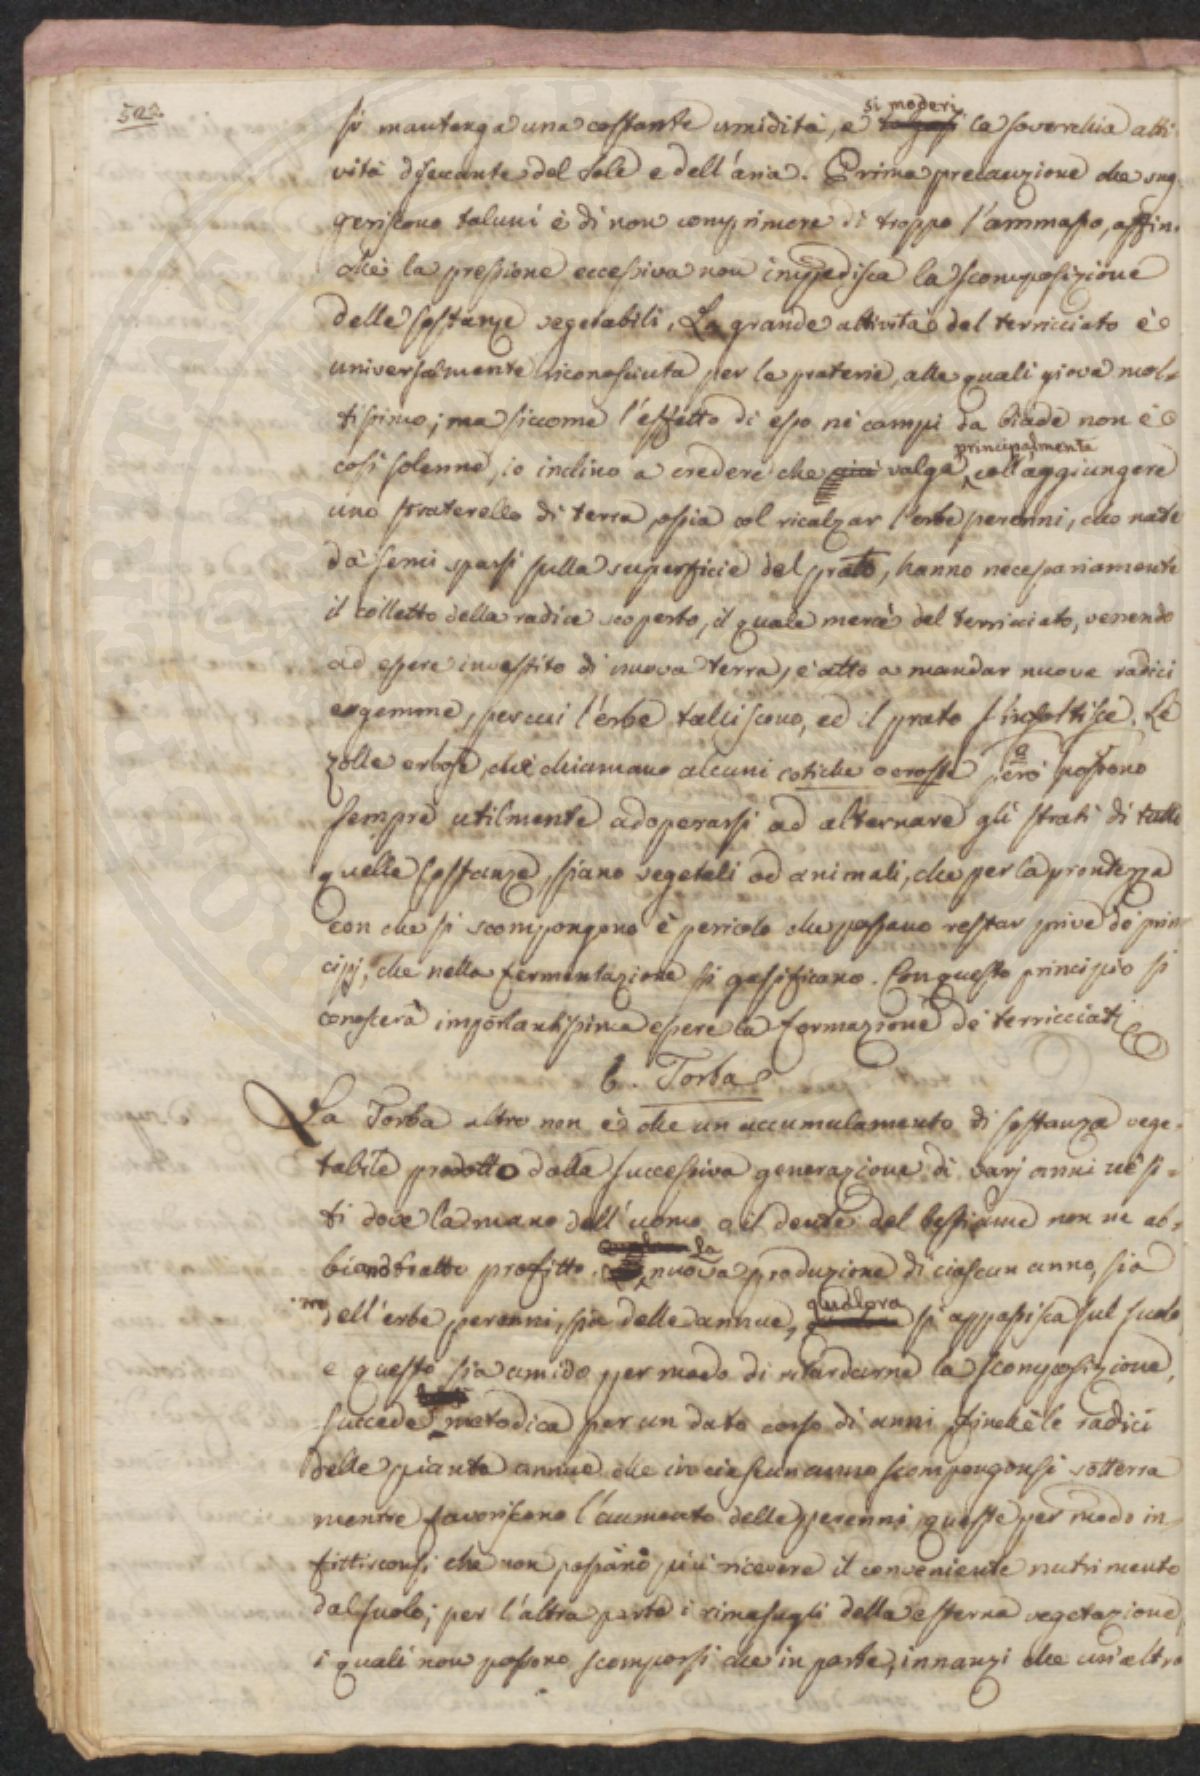 502.
si mantenga una costante umidità, e si moderi la soverchia atti-
vità disseccante del sole e dell'aria. Prima precauzione che sug-
geriscono taluni è di non comprimere di troppo l'ammasso, affin-
chè la pressione eccessiva non impedisca la scomposizione
delle sostanze vegetabili. La grande attività del terricciato è
universalmente riconosciuta per le praterie, alle quali giova mol-
tissimo; ma siccome l'effetto di esso ne' campi da biade non è
così solenne, io inclino a credere che valga principalmente coll'aggiungere
uno straterello di terra, ossia col ricalzar l'erbe perenni, che nate
da semi sparsi sulla superficie del prato, hanno necessariamente
il colletto della radice scoperto, il quale mercè del terricciato, venendo
ad essere investito di nuova terra, è atto a mandar nuove radici
e gemme, per cui l'erbe talliscono, ed il prato s'infoltisce. Le
zolle erbose, che chiamano alcuni cotiche o croste però possono
sempre utilmente adoperarsi ad alternare gli strati di tutte
quelle sostanze, siano vegetali od animali, che per la prontezza
con che si scompongono è pericolo che possano restar prive de' prin-
cipj, che nella fermentazione si gasificano. Con questo principio si
conoscerà importantissima essere la formazione de' terricciati
6. Torba
La Torba altro non è che un accumulamento di sostanza vege-
tabile prodotto dalla successiva generazione di varj anni ne' si-
ti dove la mano dell'uomo o il dente del bestiame non ne ab-
biano tratto profitto. La nuova produzione di ciascun anno, sia
dell'erbe perenni, sia delle annue, qualora si appassisca sul suolo,
e questo sia umido per modo di ritardarne la scomposizione,
succede metodica per un dato corso di anni, finchè le radici
delle piante annue che in ciascun anno scompongonsi sotterra
mentre favoriscono l'aumento delle perenni, queste per modo in-
fittisconsi che non possano più ricevere il conveniente nutrimento
dal suolo; per l'altra parte i rimasugli della esterna vegetazione,
i quali non possono scomporsi che in parte, innanzi che un'altra